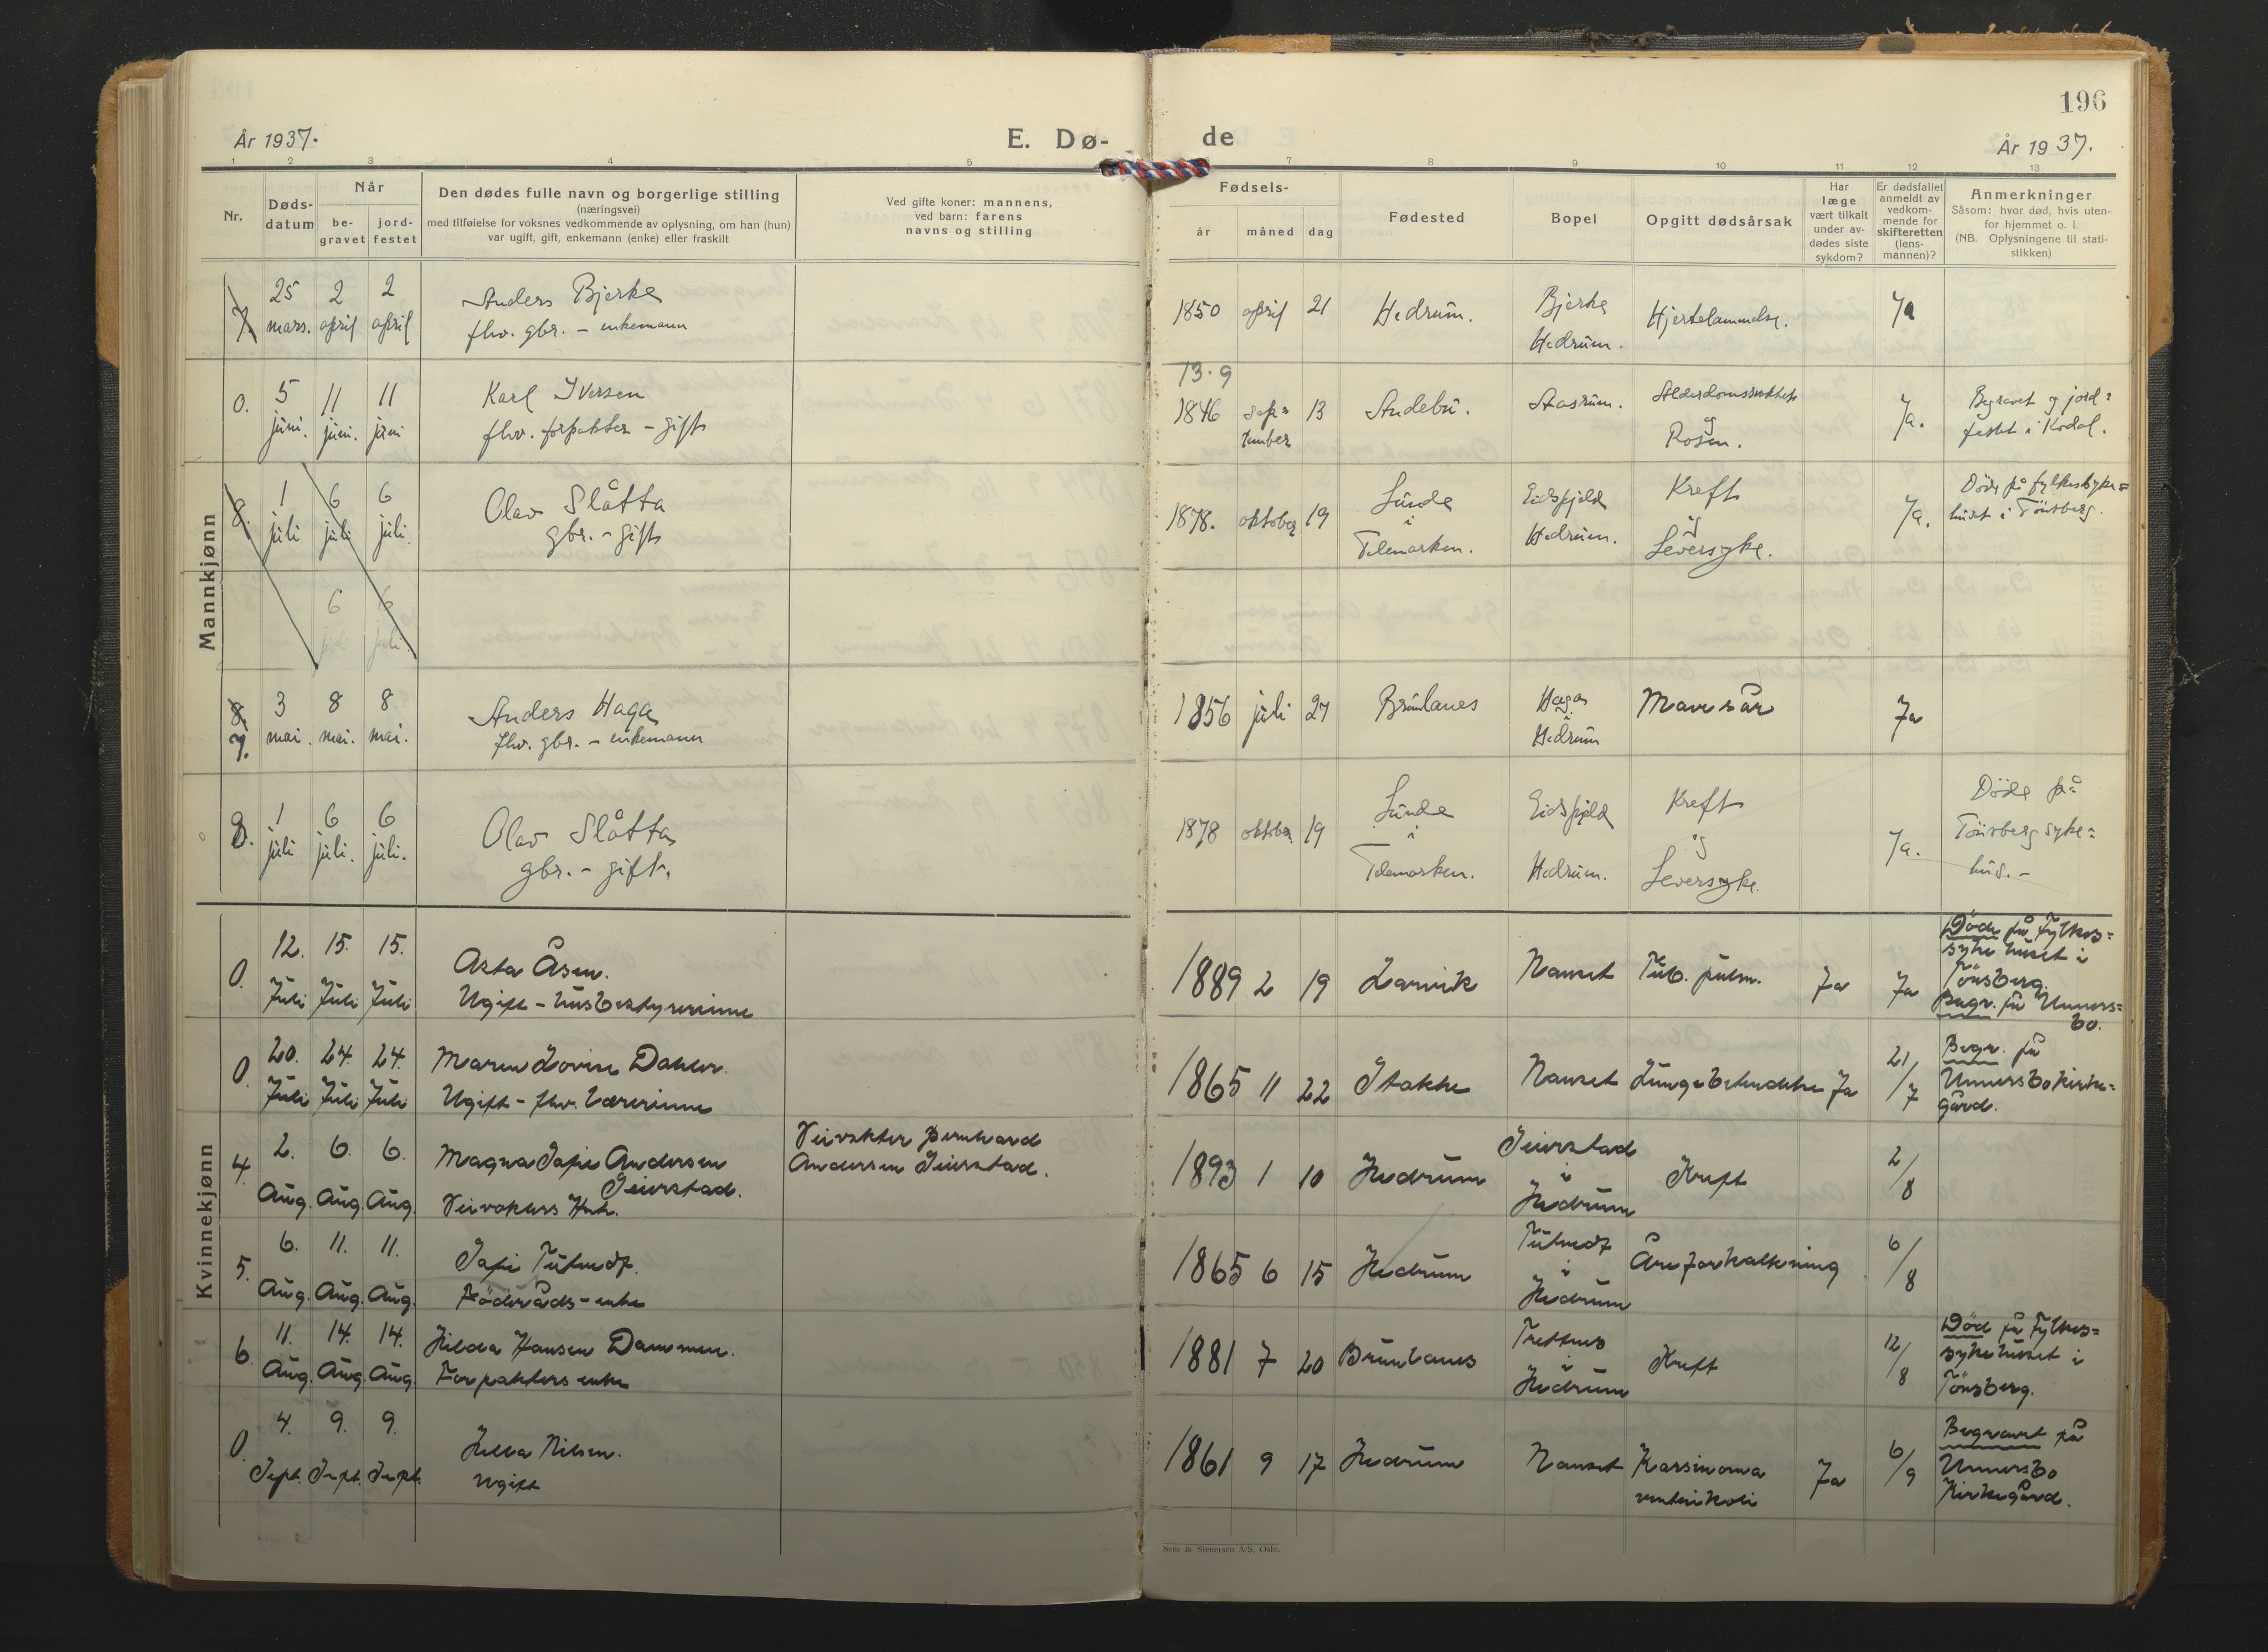 196
År 1937.
E. Dø-
de
År 1937.
1 2 3 4 5 7 8 9 10 11 12 13
Nr.
Døds-
datum
Når
be-
gravet
jord-
festet
Den dødes fulle navn og borgerlige stilling
(næringsvei)
med tilføielse for voksnes vedkommende av oplysning, om han (hun)
var ugift, gift, enkemann (enke) eller fraskilt
Ved gifte koner: mannens,
ved barn: farens
navns og stilling
Fødsels-
år
måned
dag
Fødested
Bopel
Opgitt dødsårsak
Har
læge
vært tilkalt
under av-
dødes siste
sykdom?
Er dødsfallet
anmeldt av
vedkom-
mende for
skifteretten
(lens-
mannen)?
Anmerkninger
Såsom: hvor død, hvis uten-
for hjemmet o. l.
(NB. Oplysningene til stati-
stikken)
Mannkjønn
7. 25 2 2 Anders Bjerke
mars. april april fhv. gbr. - enkemann
1850 april 21 Hedrum. Bjerke Hjertelammelse. Ja
Hedrum.
13.9
0. 5 11 11 Karl Iversen
juni. juni. juni fhv. forpakter - gift
1846 sep= 13 Andebu.
tember
og
Ja. Begravet og jord=
festet i Kodal.
8. 1 6 6 Olav Slåtta
juli juli juli. gbr. - gift
1878. oktober 19 Lunde Eidsfjeld Kreft
i Hedrum. og
Telemarken. Leversyke.
Ja. Døde på fylkessyke=
huset i Tönsberg.
6 6
juli juli.
8. 3 8 8 Anders Haga
7. mai. mai. mai. fhv. gbr. - enkemann
1856 juli 27 Brunlanes Haga Mavesår Ja
i
Hedrum
8. 1 6 6 Olav Slåtta
juli juli. juli. gbr. - gift.
1878 oktober 19 Lunde Eidsfjeld Kreft
i og
Telemarken. Hedrum. Leversyke.
Ja. Döde på
Tönsberg syke=
hus. -
Kvinnekjønn
0. 12. 15. 15. Asta Åsen.
Juli Juli Juli Ugift - husbestyrerinne
1889 2 19 Larvik Nanset Tub. pulm. Ja Ja
Döde på Fylkes=
sykehuset i
Tönsberg.
Begr. på Unners=
bo.
0. 20. 24. 24. Maren Lovise Dahler.
Juli Juli Juli Ugift - fhv. Lærerinne
1865 11 22 Stokke Nanset Lungebetendelse Ja 21/7
Begr. på
Unnersbo kirke=
gård.
4. 2. 6. 6. Magna Sofie Andersen
Seierstad.
Aug. Aug. Aug. Veivokters Hust.
Veivokter Bernhard
Andersen Seierstad.
1893 1 10 Hedrum Seierstad Kreft 2/8
i
Hedrum
5. 6. 11. 11. Sofie
Aug. Aug. Aug. Föderåds-enke
1865 6 15 Hedrum
i
Hedrum
Åreforkalkning 6/8
6. 11. 14. 14. Hilda Hansen Dammen.
Aug. Aug. Aug. Forpakters enke
1881 7 20 Brunlanes
i
Hedrum
Kreft 12/8
Död på Fylkes=
sykehuset i
Tönsberg.
0. 4. 9. 9. Nilsen.
Sept. Sept. Sept. Ugift
1861 9 17 Hedrum Nanset Karsinoma
ventrikoli
Ja 6/9
Begravet på
Unnersbo
Kirkegård.
Sem & Stenersen A/S, Oslo.